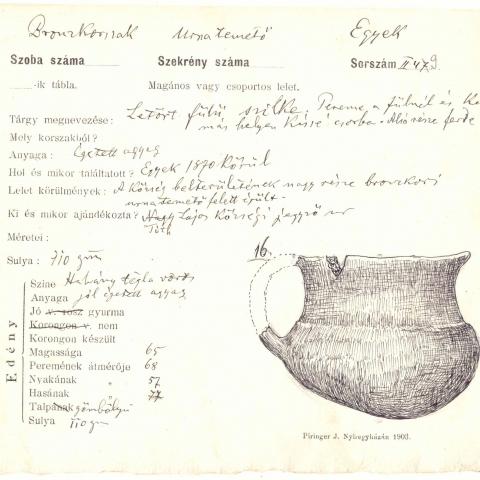 Bronzkorszak Urnatemető Egyek
Szoba száma Szekrény száma Sorszám II 479
-ik tábla. Magános vagy csoportos lelet.
Tárgy megnevezése: Letört fülű szilke. Pereme a fülnél és
más helyen kissé csorba. Alsó része ferde
Mely korszakból?
Anyaga: Égetett agyag
Hol és mikor találtatott? Egyek 1870 körül
Lelet körülmények: A község belterületének nagy része bronzkori
urnatemető felett épült.
Ki és mikor ajándékozta? Nagy Lajos községi jegyző úr
Tóth
Méretei:
Sulya: 110 gm
Edény
Szine Halvány tégla vörös
Anyaga jól égetett agyag
Jó v. rosz gyurma
Korongon v. nem
Korongon készült
Magassága 65
Peremének átmérője 68
Nyakának 57
Hasának 77
Talpának gömbölyű
Sulya 110 gm
16.
Piringer J. Nyiregyházán 1903.